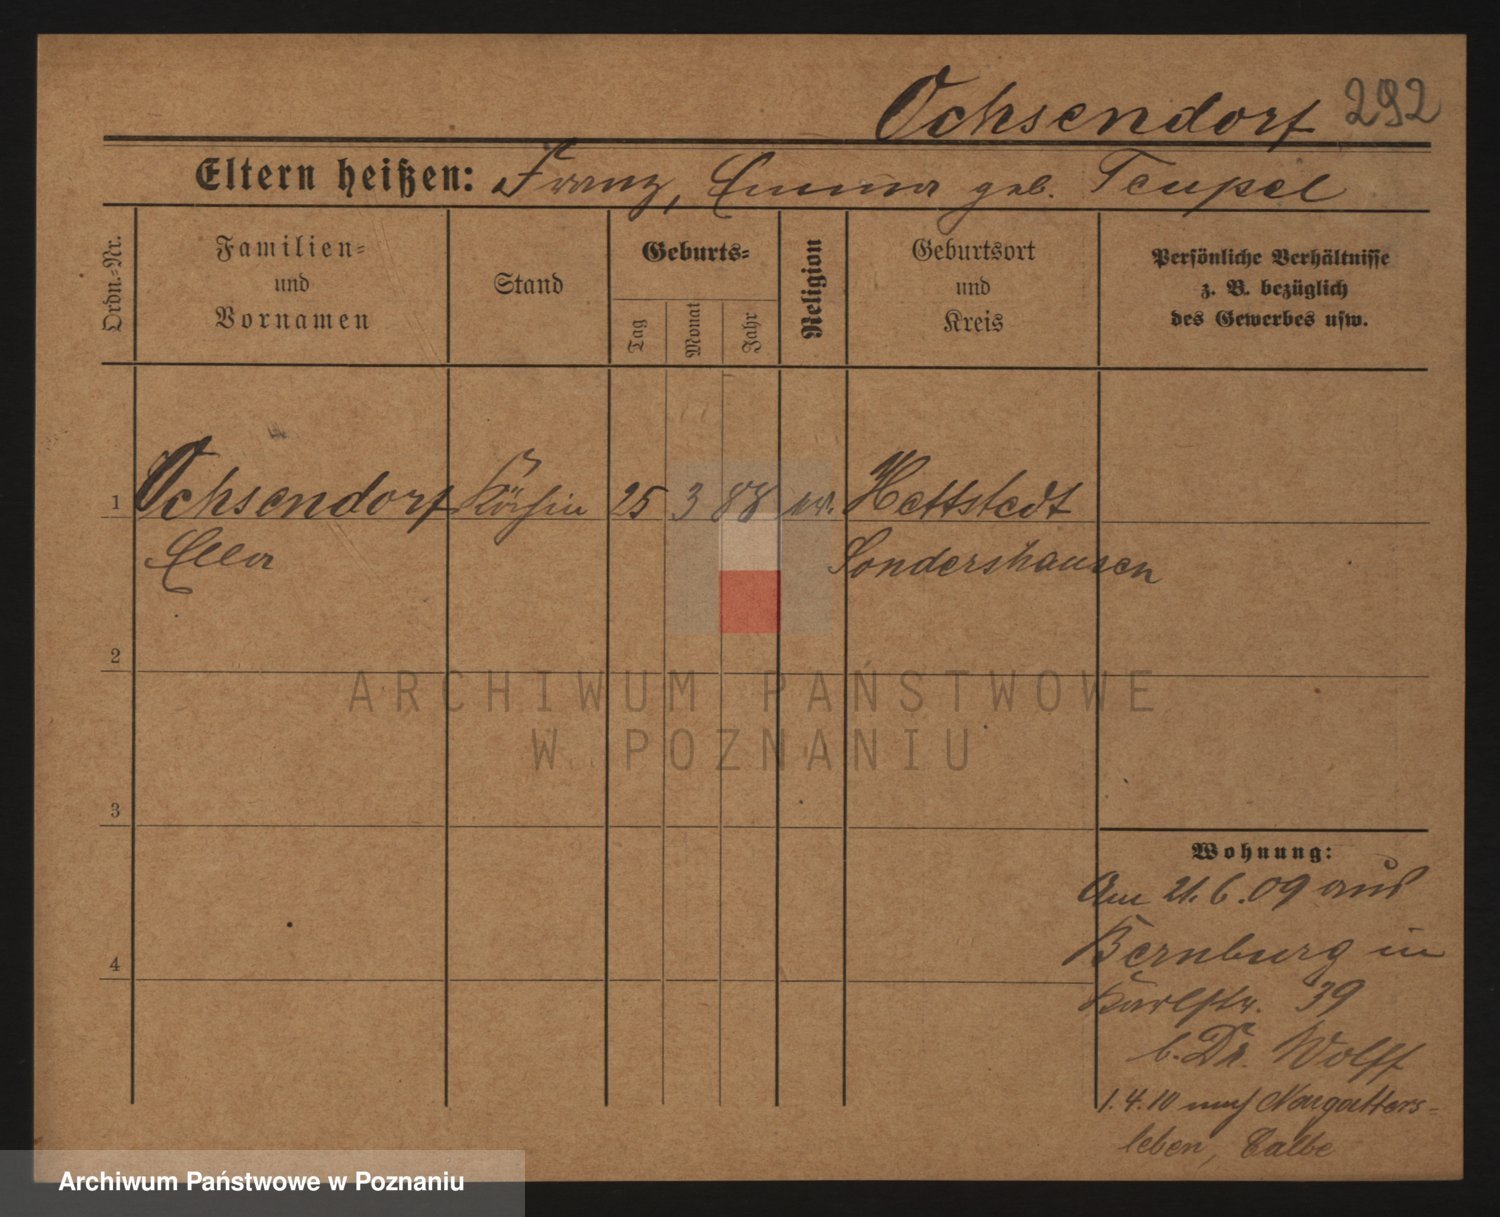 Ochsendorf 292
Eltern heißen: Franz, Emma geb. Teupel
Ordn.-Nr.
Familien-
und
Vornamen
Stand
Geburts-
Tag
Monat
Jahr
Religion
Geburtsort
und
Kreis
Persönliche Verhältnisse
z. B. bezüglich
des Gewerbes usw.
1 Ochsendorf Köchin 25 3 88 ev. Hettstedt
Ella Sondershausen
2
3
4
ARCHIWUM PAŃSTWOWE
W POZNANIU
Wohnung:
Am 21.6.09 aus
Bernburg in
Karlstr. 39
b. Dr. Wolff
1.4.10 nach Neugatters-
leben, Calbe
Archiwum Państwowe w Poznaniu